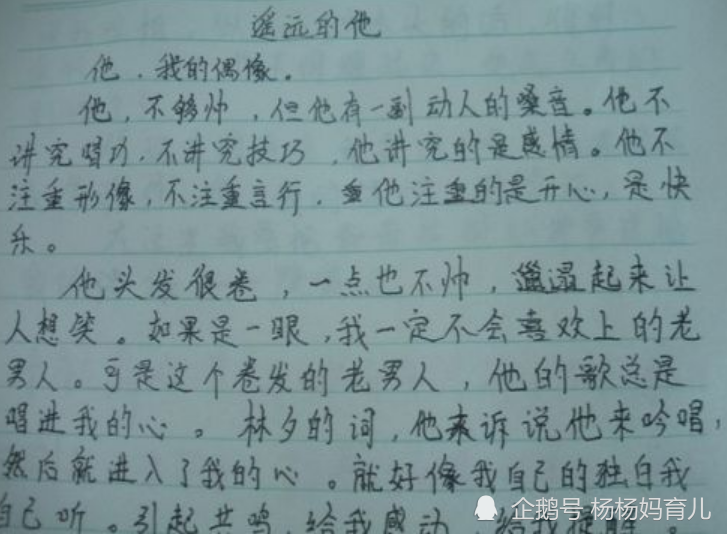 遥远的他
他，我的偶像。
他，不够帅，但他有一副动人的嗓音。他不
讲究唱功，不讲究技巧，他讲究的是感情。他不
注重形像，不注重言行，他注重的是开心，是快
乐。
他头发很卷，一点也不帅，邋遢起来让
人想笑。如果是一眼，我一定不会喜欢上的老
男人。可是这个卷发的老男人，他的歌总是
唱进我的心。林夕的词，他来诉说他来吟唱，
然后就进入了我的心。就好像我自己的独白我
自己听。引起共鸣，给我感动，给我
企鹅号 杨杨妈育儿